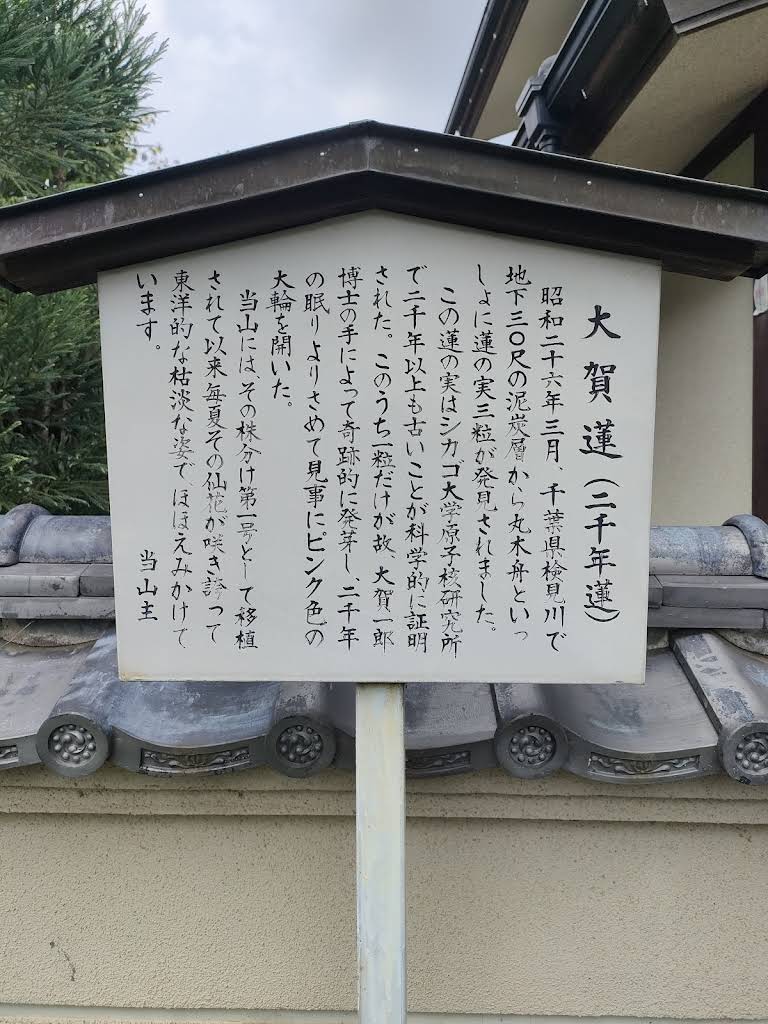 大賀蓮(二千年蓮)
昭和二十六年三月、千葉県検見川で
地下三〇尺の泥炭層から丸木舟といっ
しょに蓮の実三粒が発見されました。
この蓮の実はシカゴ大学原子核研究所
で二千年以上も古いことが科学的に証明
された。このうち一粒だけが故、大賀一郎
博士の手によって奇跡的に発芽し、二千年
の眠りよりさめて見事にピンク色の
大輪を開いた。
当山には、その株分け第一号として移植
されて以来毎夏その仙花が咲き誇って
東洋的な枯淡な姿で、ほほえみかけて
います。
当山主